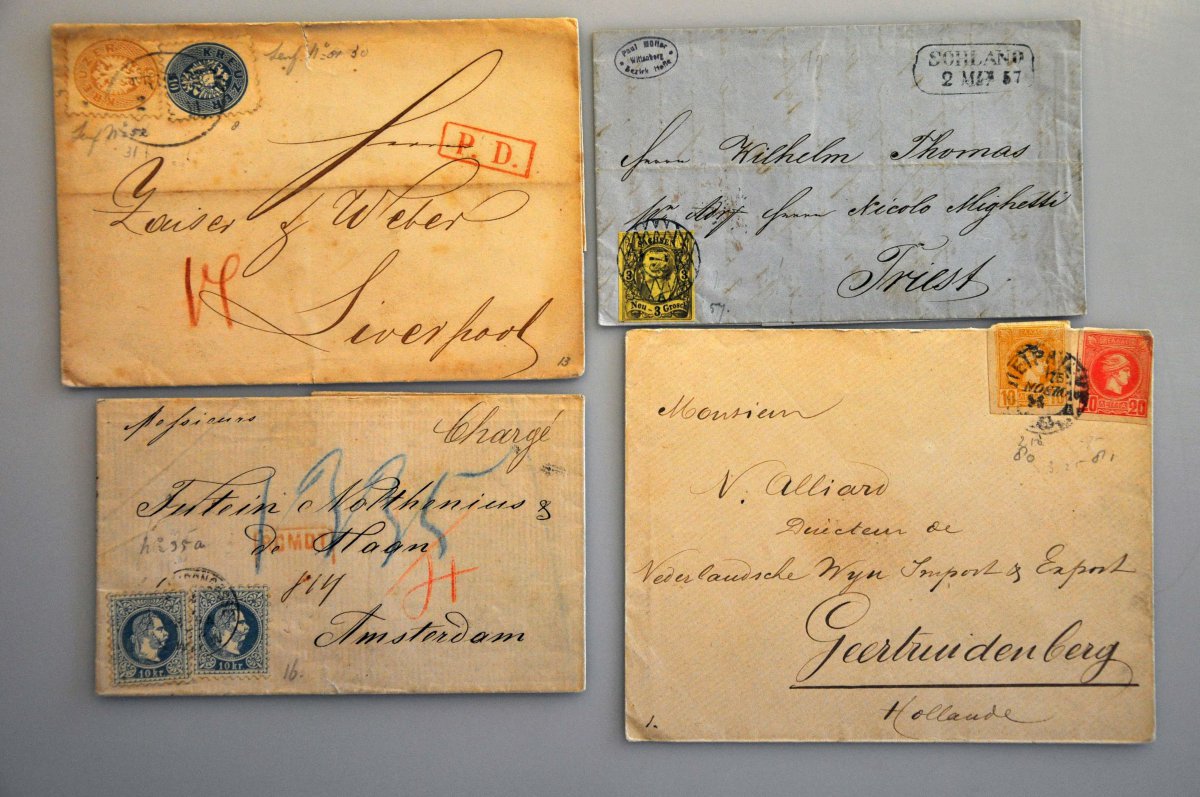 KREUZER
KREUZER
10
Herrn
P. D.
Zaiser & Weber
Liverpool
13
Paul Müller
Wittenberg
Bezirk Halle
SOHLAND
2 MAI 57
Herrn Wilhelm Thomas
pr Adr Herrn Nicolo Mighetti
3 3
Neu-3 Grosch
57.
Triest
Messieurs
Chargé
1335
Tutein Nolthenius &
de Haan
No 35a
Amsterdam
10 kr.
10 kr.
16.
10 10
20
Monsieur
N. Alliard
Directeur de
Nederlandsche Wyn Import & Export
Geertruidenberg
Hollande
1.